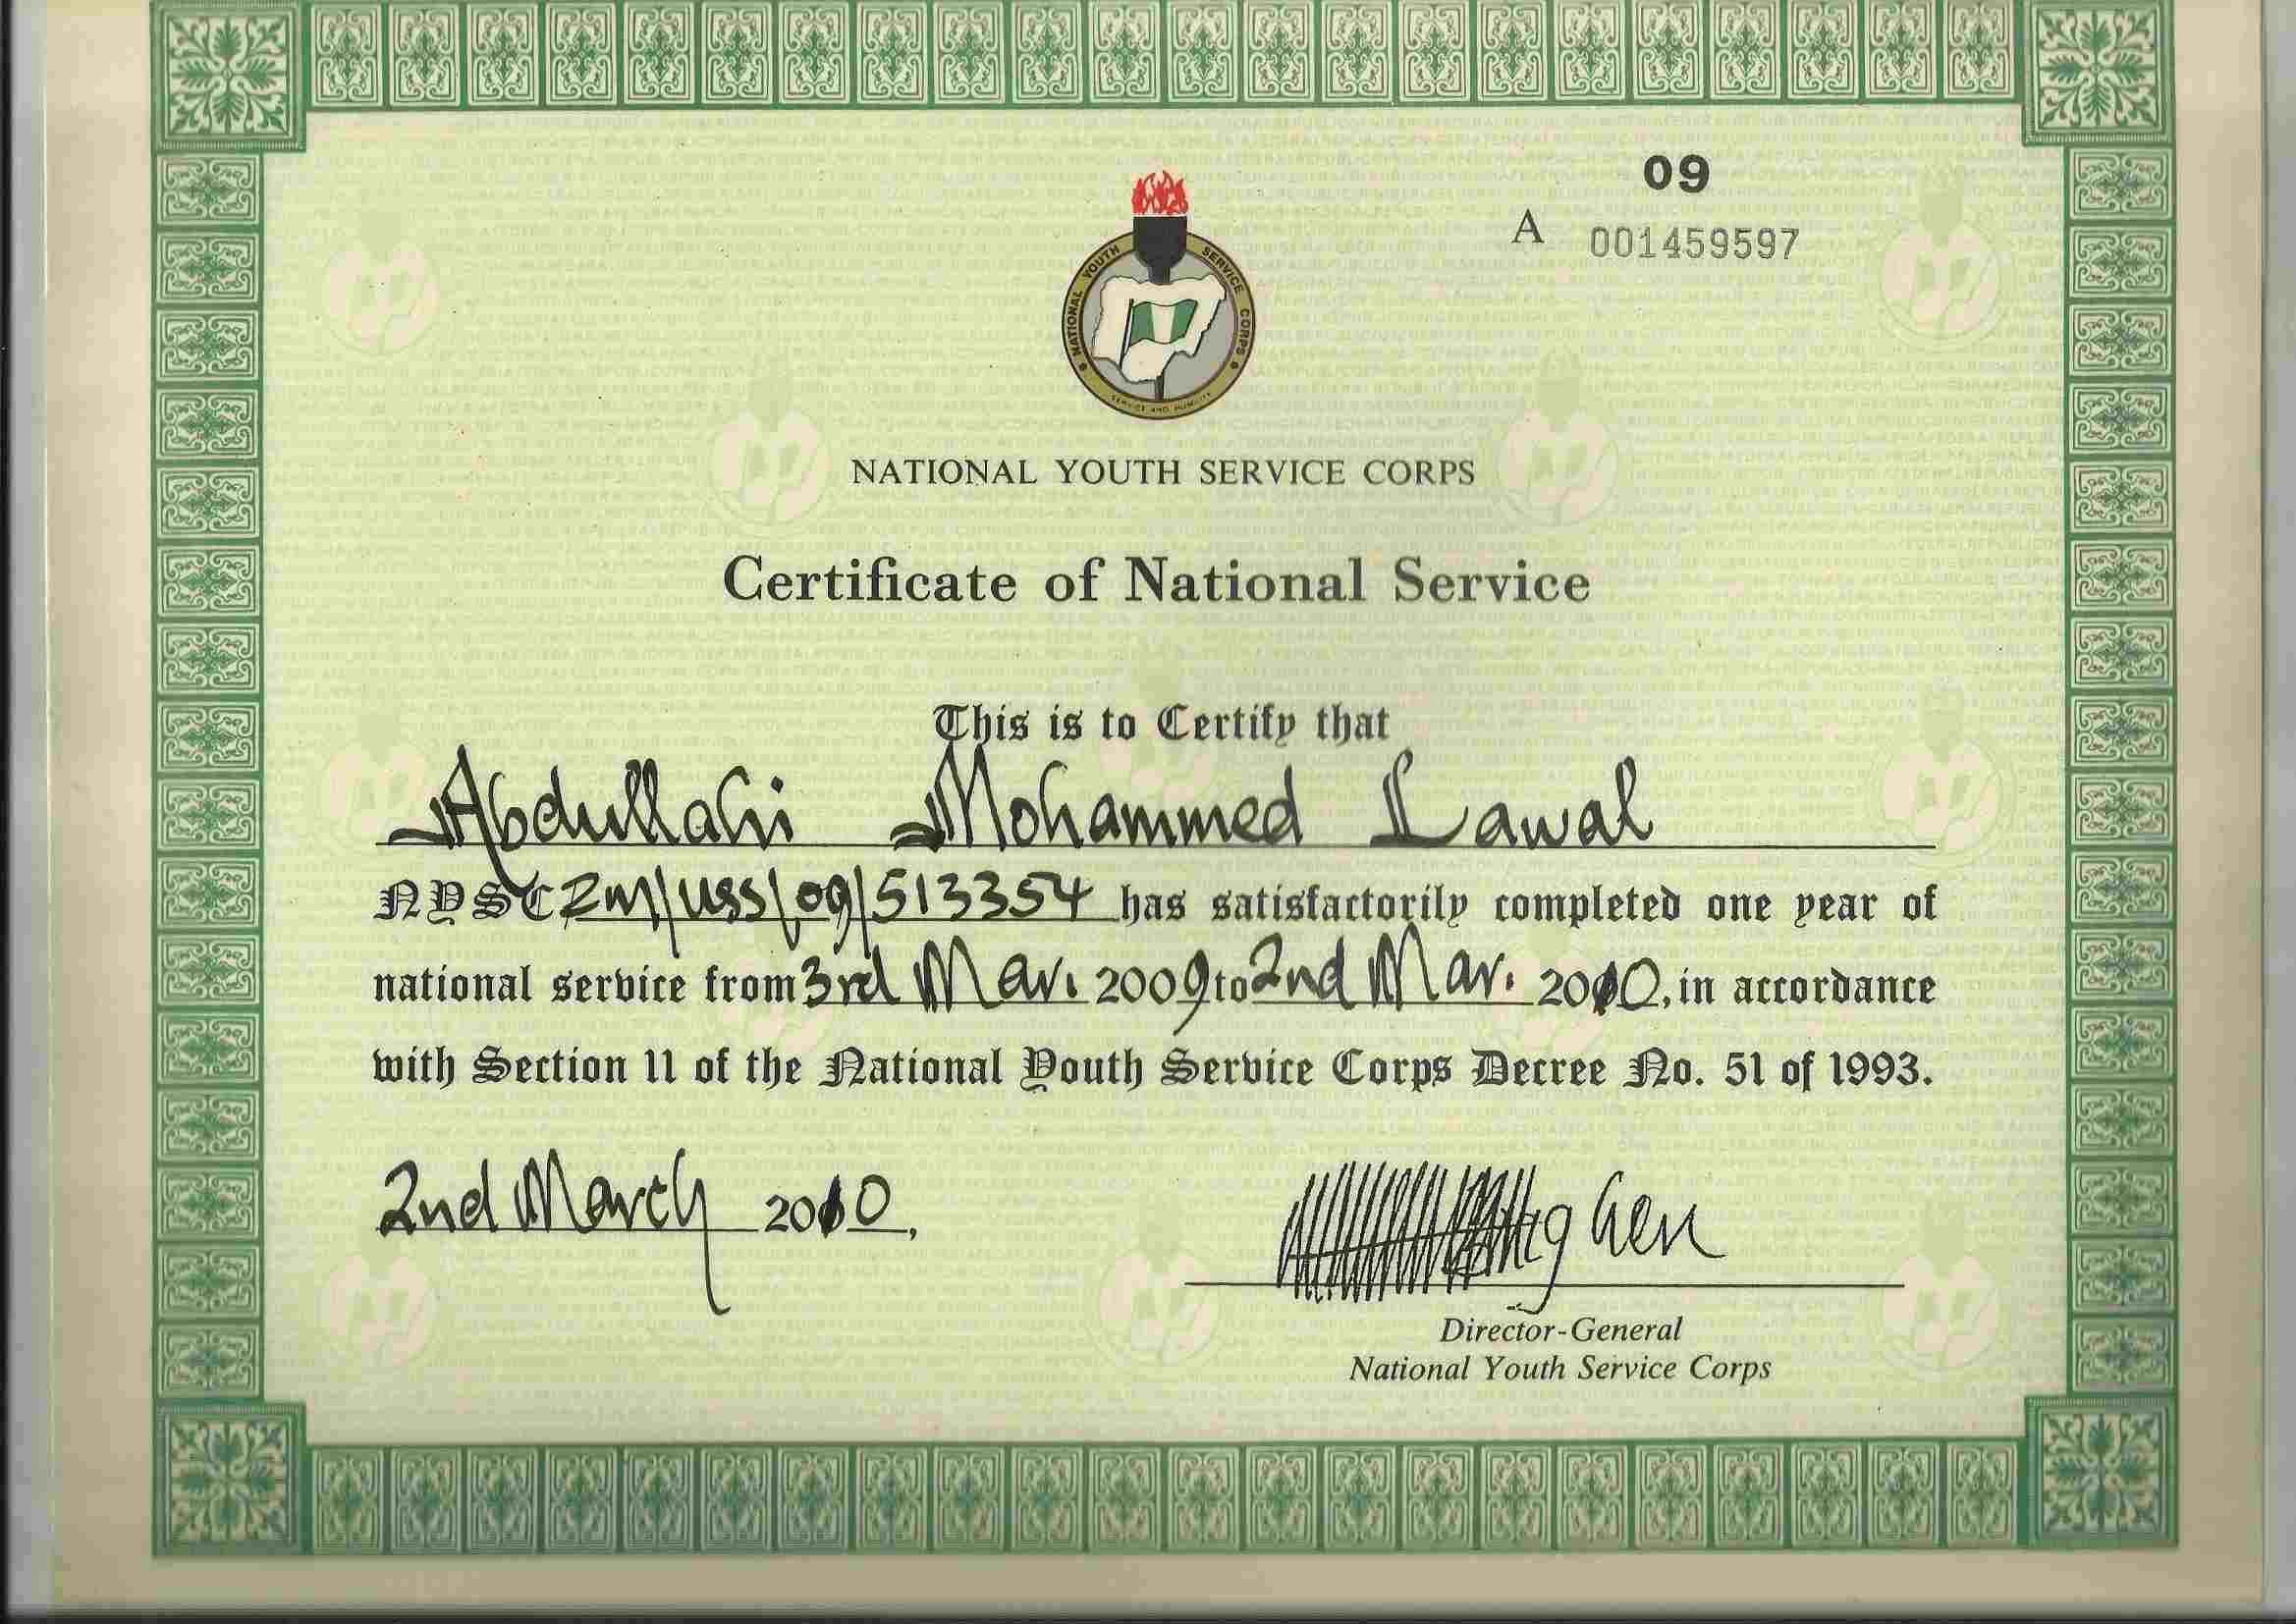 09
A 001459597
NATIONAL YOUTH SERVICE CORPS
SERVICE AND HUMILITY
NATIONAL YOUTH SERVICE CORPS
Certificate of National Service
This is to Certify that
Abdullahi Mohammed Lawal
NYSC Zm/uss/09/513354 has satisfactorily completed one year of
national service from 3rd Mar. 2009 to 2nd Mar. 2010, in accordance
with Section 11 of the National Youth Service Corps Decree No. 51 of 1993.
2nd March 2010,
Director-General
National Youth Service Corps